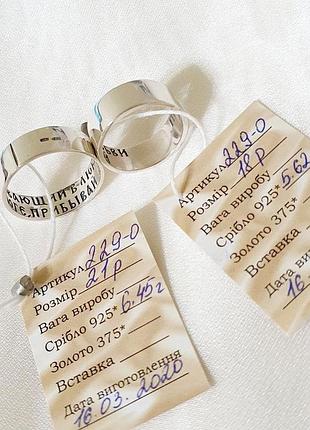 ВАЮЩИЙ В ЛЮ
ГЕ ПРИБЫВАЙ
БВИ
Артикул 229-0
Розмір 18р
Вага виробу
Срібло 925* 5.62
Золото 375*
Вставка
Дата ви
16.
Артикул 229-0
Розмір 21р
Вага виробу
Срібло 925* 6.45г
Золото 375*
Вставка
Дата виготовлення
16.03.2020